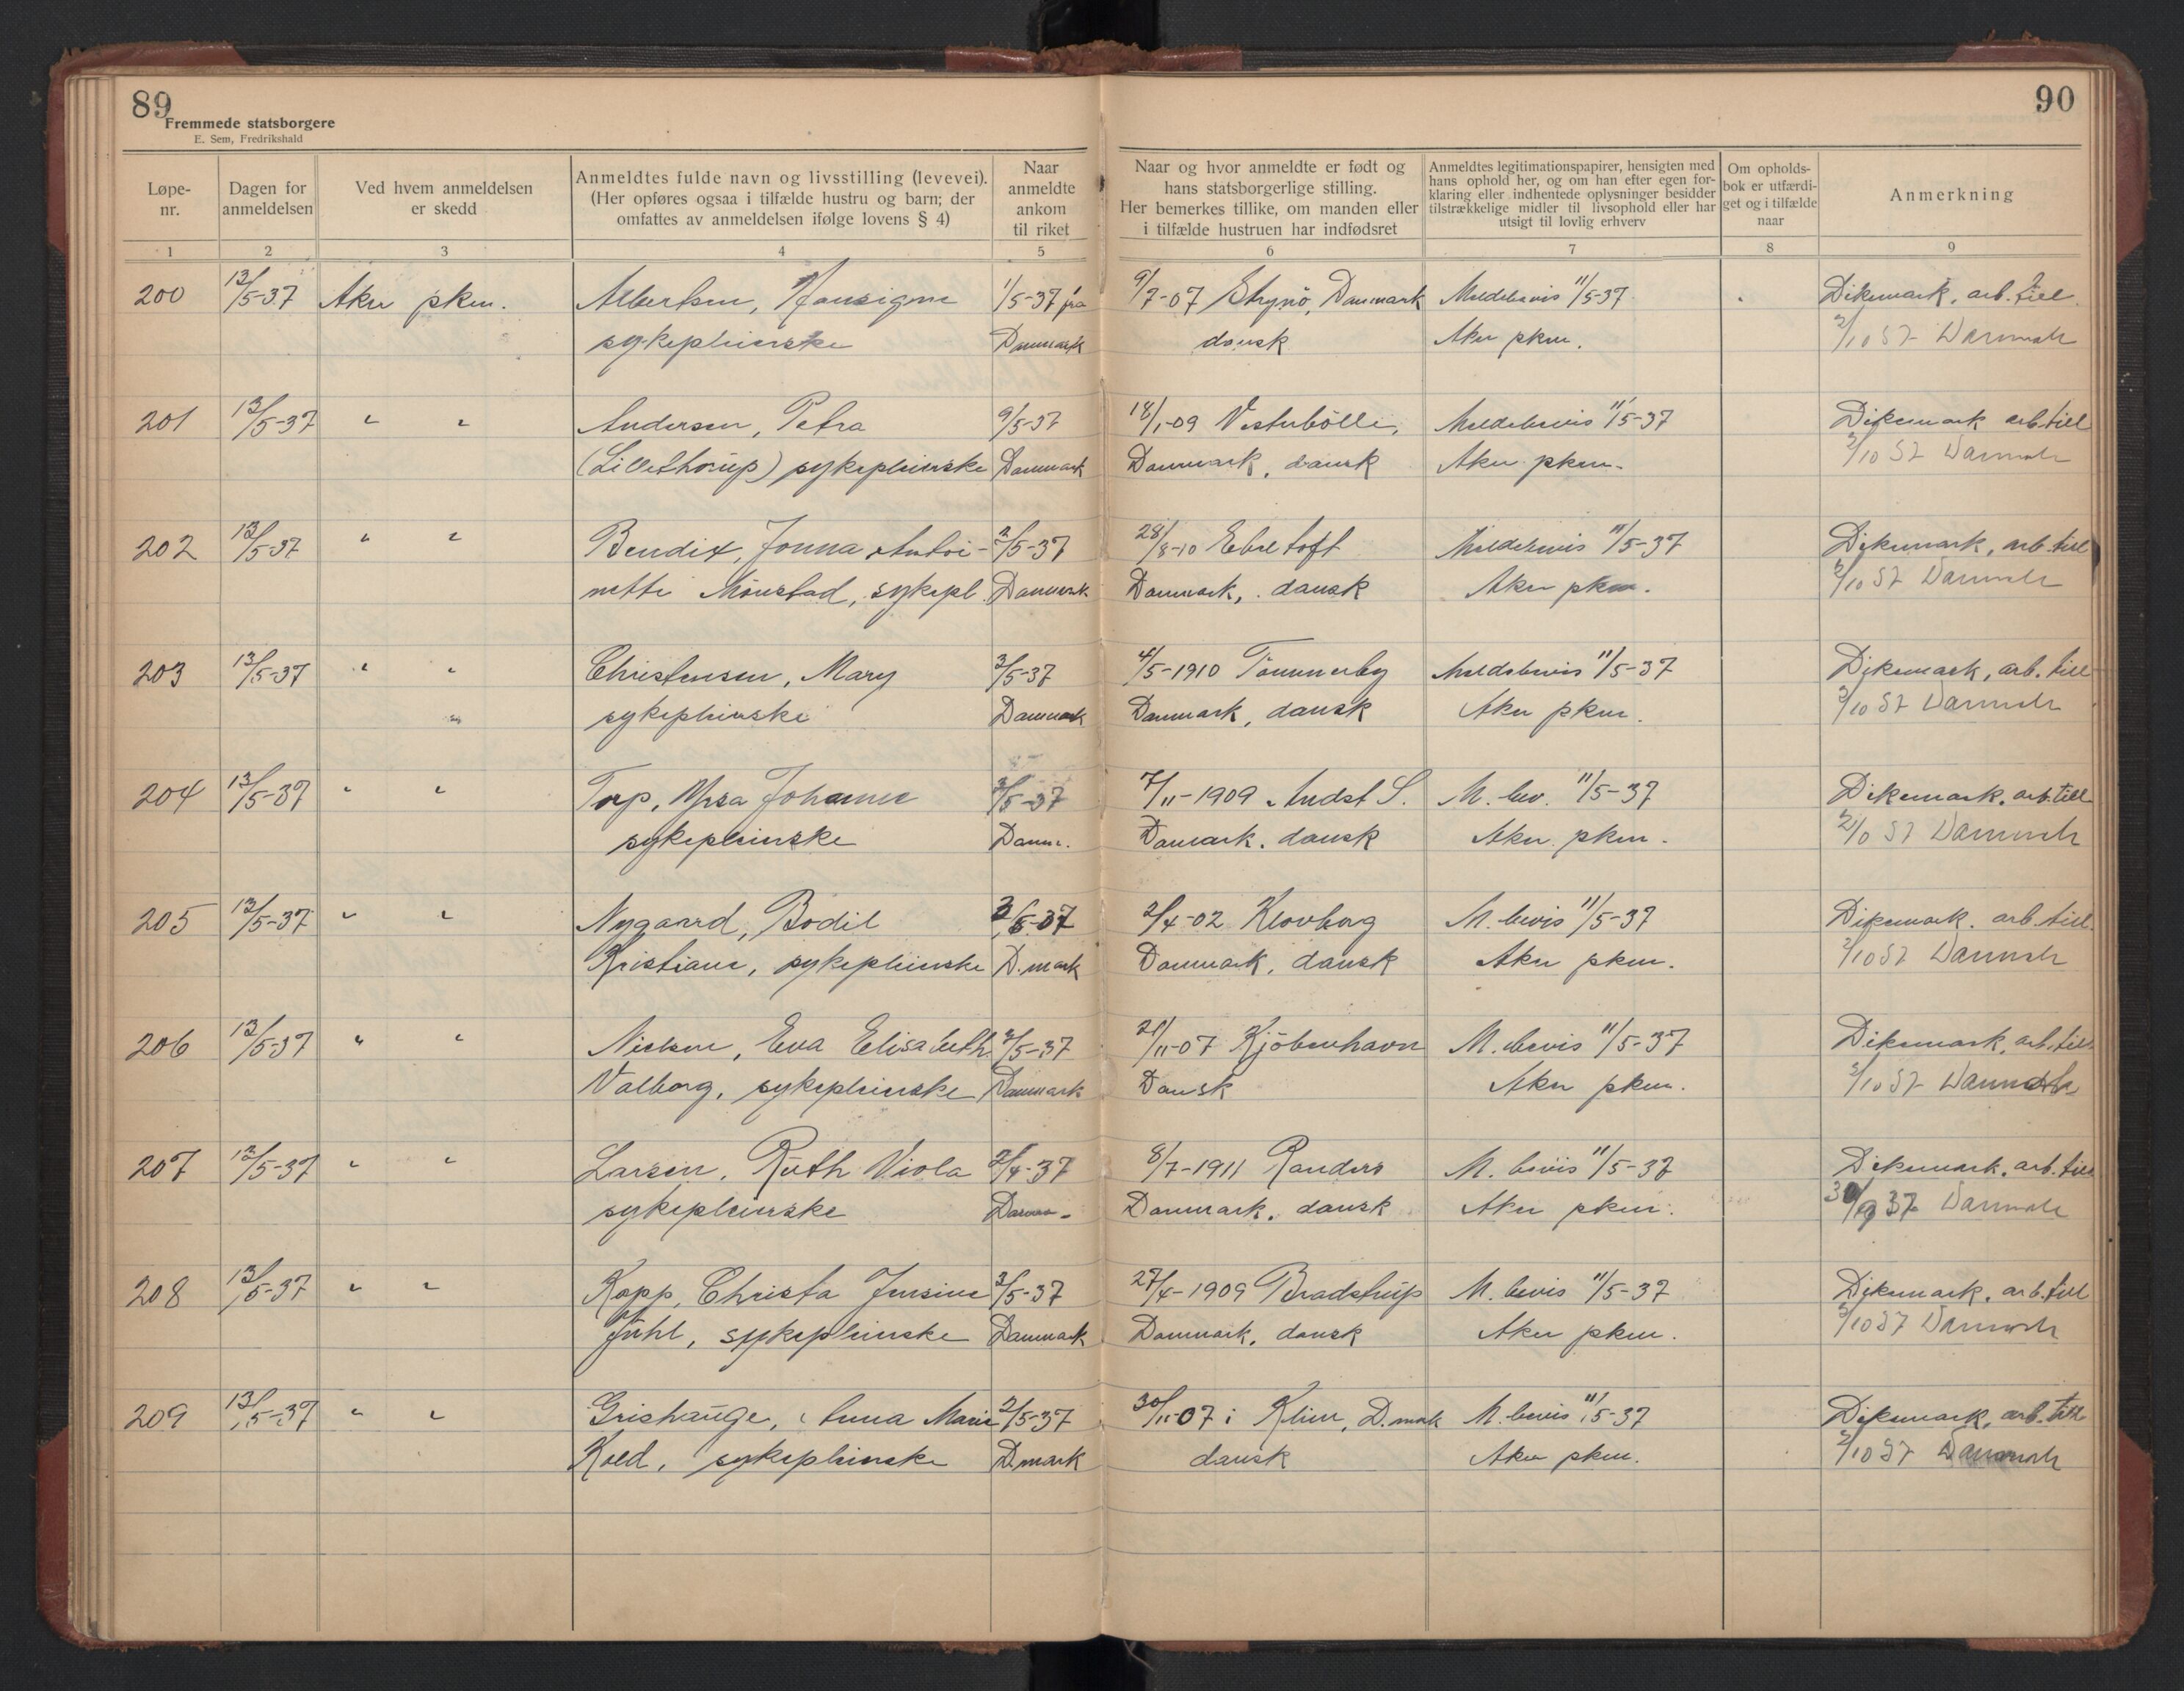 89
Fremmede statsborgere
E. Sem, Fredrikshald
90
Løpe-nr.
Dagen for anmeldelsen
Ved hvem anmeldelsen er skedd
Anmeldtes fulde navn og livsstilling (levevei).
(Her opføres ogsaa i tilfælde hustru og barn; der
omfattes av anmeldelsen ifølge lovens § 4)
Naar anmeldte ankom til riket
Naar og hvor anmeldte er født og
hans statsborgerlige stilling.
Her bemerkes tillike, om manden eller
i tilfælde hustruen har indfødsret
Anmeldtes legitimationspapirer, hensigten med
hans ophold her, og om han efter egen for-
klaring eller indhentede oplysninger besidder
tilstrækkelige midler til livsophold eller har
utsigt til lovlig erhverv
Om opholds-
bok er utfærdi-
get og i tilfælde
naar
Anmerkning
1 2 3 4 5 6 7 8 9
200 13/5-37 Aker pkm. Albertsen, Jansigne 1/5-37 fra 9/7-07 Strynö, Danmark Meldebevis 11/5-37 Dikemark, arb.till.
sykepleierske Danmark dansk Aker pkm. 2/10 37 Danmark
201 13/5-37 " " Andersen, Petra 9/5-37 18/1-09 Vesterbölle, Meldebevis 11/5-37 Dikemark arb.till
(Lillethorup) sykepleierske Danmark Danmark, dansk Aker pkm. 2/10 37 Danmark
202 13/5-37 " " Bendix, Jonna Antoi- 2/5-37 28/8-10 Ebeltoft Meldebevis 11/5-37 Dikemark, arb.till
nette Mönstad, sykepl. Danmark Danmark, dansk Aker pkm. 2/10 37 Danmark
203 13/5-37 " " Christensen, Mary 3/5-37 4/5-1910 Tömmerby Meldebevis 11/5-37 Dikemark, arb.till
sykepleierske Danmark Danmark, dansk Aker pkm. 2/10 37 Danmark
204 13/5-37 " " Torp, Yrsa Johanne 3/5-37 7/11-1909 Andst S. M. bev. 11/5-37 Dikemark, arb.till
sykepleierske Danm. Danmark, dansk Aker pkm. 2/10 37 Danmark
205 13/5-37 " " Nygaard, Bodil 3/5-37 2/4-02 Klovborg M. bevis 11/5-37 Dikemark. arb.till.
Kristiane, sykepleierske D.mark Danmark, dansk Aker pkm. 2/10 37 Danmark
206 13/5-37 " " Nielsen, Eva Elisabeth 2/5-37 21/11-07 Kjöbenhavn M. bevis 11/5-37 Dikemark, arb.till
Valborg, sykepleierske Danmark Dansk Aker pkm. 2/10 37 Danmark
207 13/5-37 " " Larsen, Ruth Viola 2/4-37 8/7-1911 Randers M. bevis 11/5-37 Dikemark, arb.till
sykepleierske Danm. Danmark, dansk Aker pkm. 30/9 37 Danmark
208 13/5-37 " " Kopp, Christa Jensine 3/5-37 27/4-1909 Bradstrup M. bevis 11/5-37 Dikemark, arb.till
Juhl, sykepleierske Danmark Danmark, dansk Aker pkm. 2/10 37 Danmark
209 13/5-37 " " Grishauge, Anna Marie 2/5-37 30/11-07 i Klim, D.mark M. bevis 11/5-37 Dikemark, arb.till
Kold, sykepleierske D.mark dansk Aker pkm. 2/10 37 Danmark